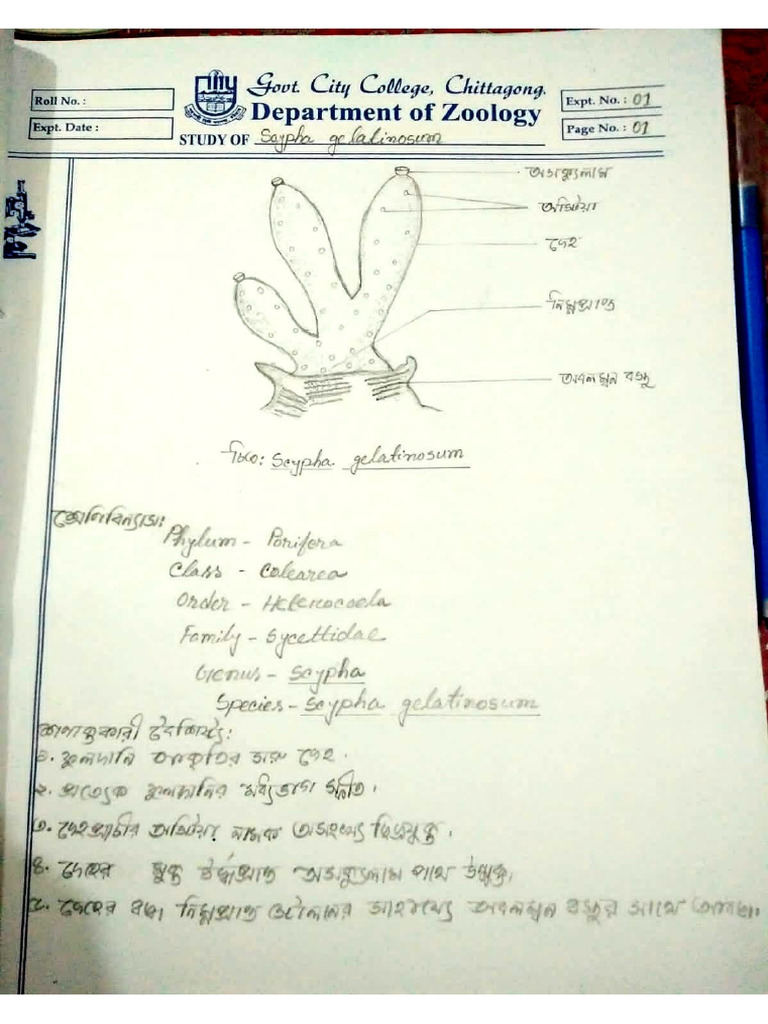 Govt. City College, Chittagong.
Department of Zoology
Roll No. :
Expt. Date :
Expt. No. : 01
Page No. : 01
STUDY OF Scypha gelatinosum
অসকুলাম
অস্টিয়া
দেহ
নিম্নপ্রান্ত
অবলম্বন বস্তু
চিত্র: Scypha gelatinosum
শ্রেণিবিন্যাস:
Phylum - Porifera
Class - Calcarea
Order - Heterocoela
Family - Sycettidae
Genus - Scypha
Species - Scypha gelatinosum
শনাক্তকারী বৈশিষ্ট্য:
১. ফুলদানি আকৃতির সরু দেহ.
২. প্রত্যেক ফুলদানির মধ্যভাগ স্ফীত।
৩. দেহপ্রাচীর অস্টিয়া নামক অসংখ্য ছিদ্রযুক্ত।
৪. দেহের মুক্ত উর্ধ্বপ্রান্ত অসকুলাম পথে উন্মুক্ত।
৫. দেহের বদ্ধ নিম্নপ্রান্ত স্টোলনের সাহায্যে অবলম্বন বস্তুর সাথে